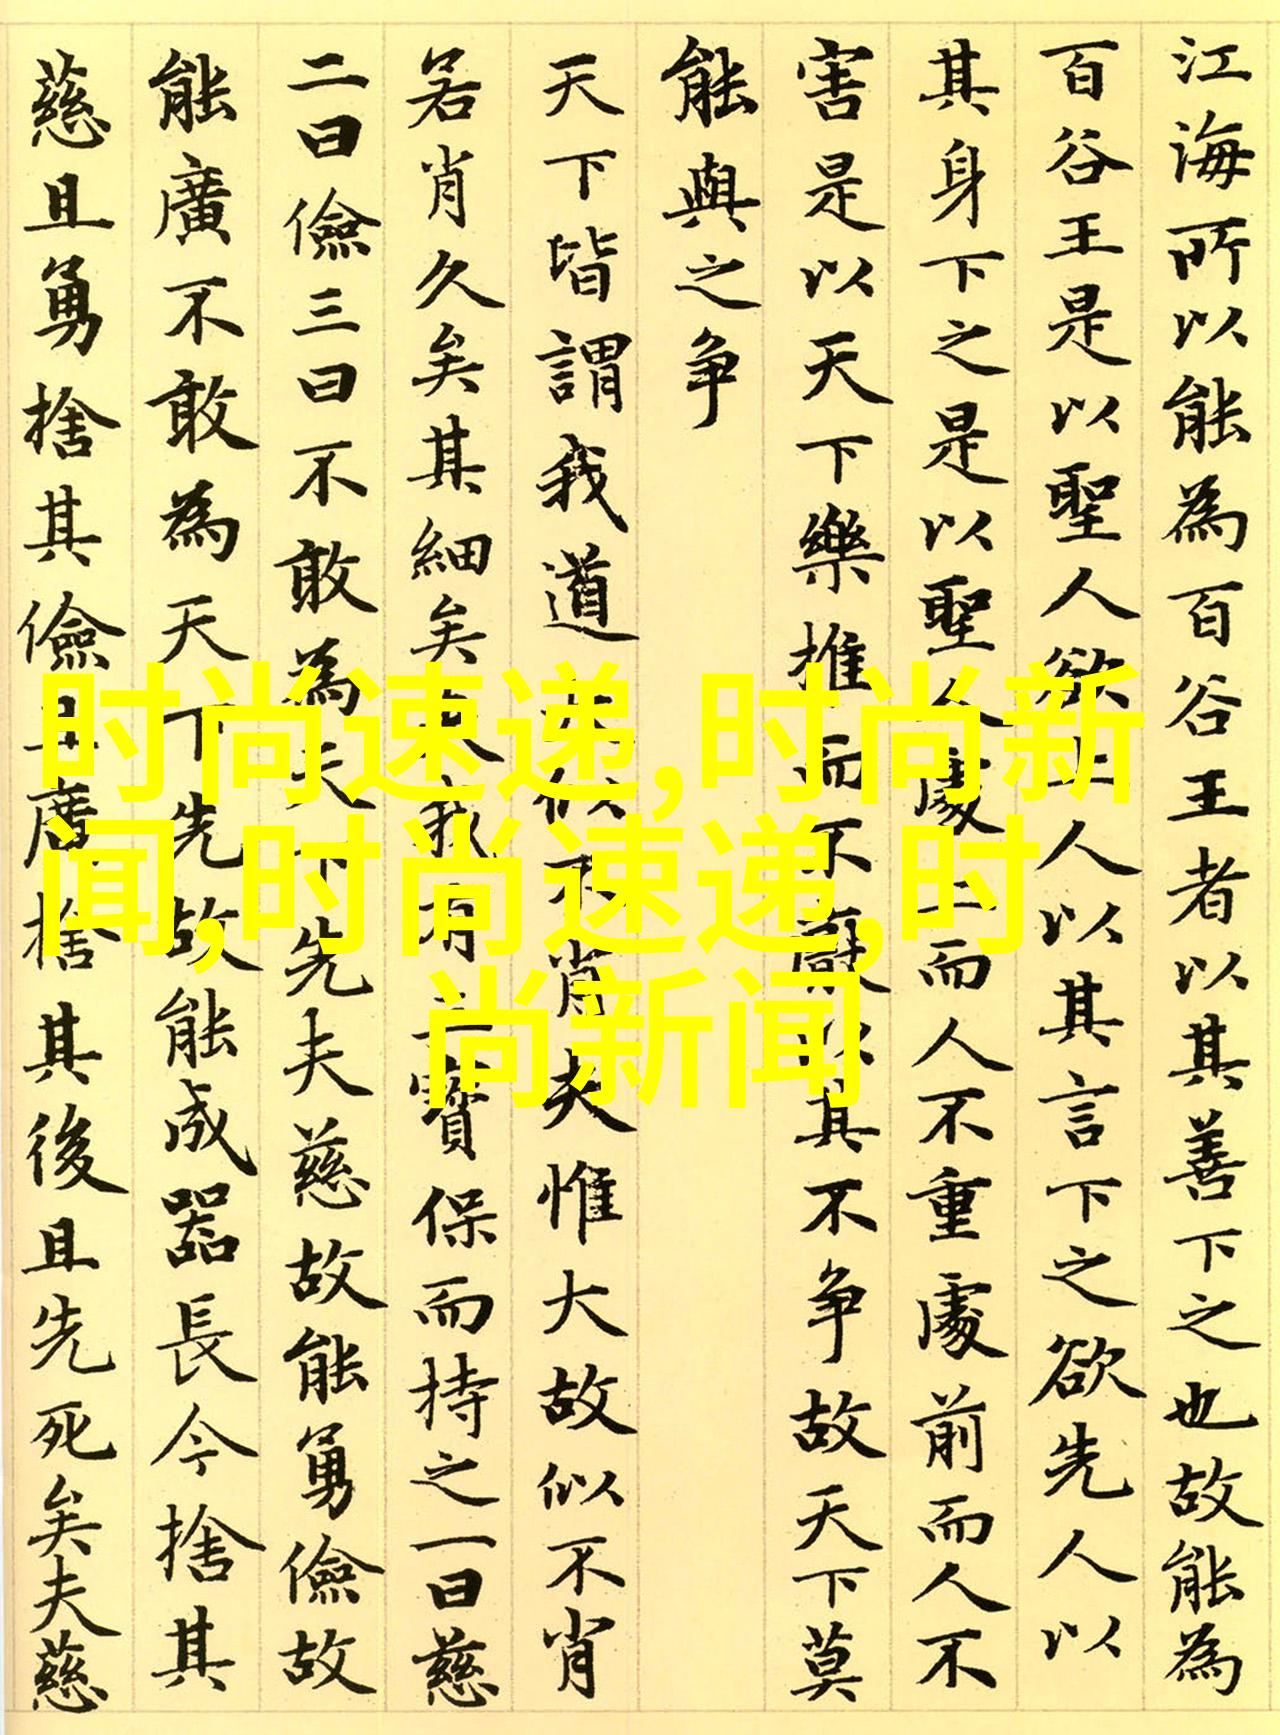 江海所以能為百谷王者以其善下之也故能為
百谷王是以聖人欲上人以其言下之欲先人以
其身下之是以聖人處上而人不重處前而人不
害是以天下樂推而不厭以其不争故天下莫
能與之争
天下皆謂我道大似不肖夫惟大故似不肖
若肖久矣其細矣夫我有三寶保而持之一曰慈
二曰儉三曰不敢為天下先夫慈故能勇儉故
能廣不敢為天下先故能成器長今捨其
慈且勇捨其儉且廣捨其後且先死矣夫慈
时尚速递,时尚新
闻,时尚速递,时
尚新闻